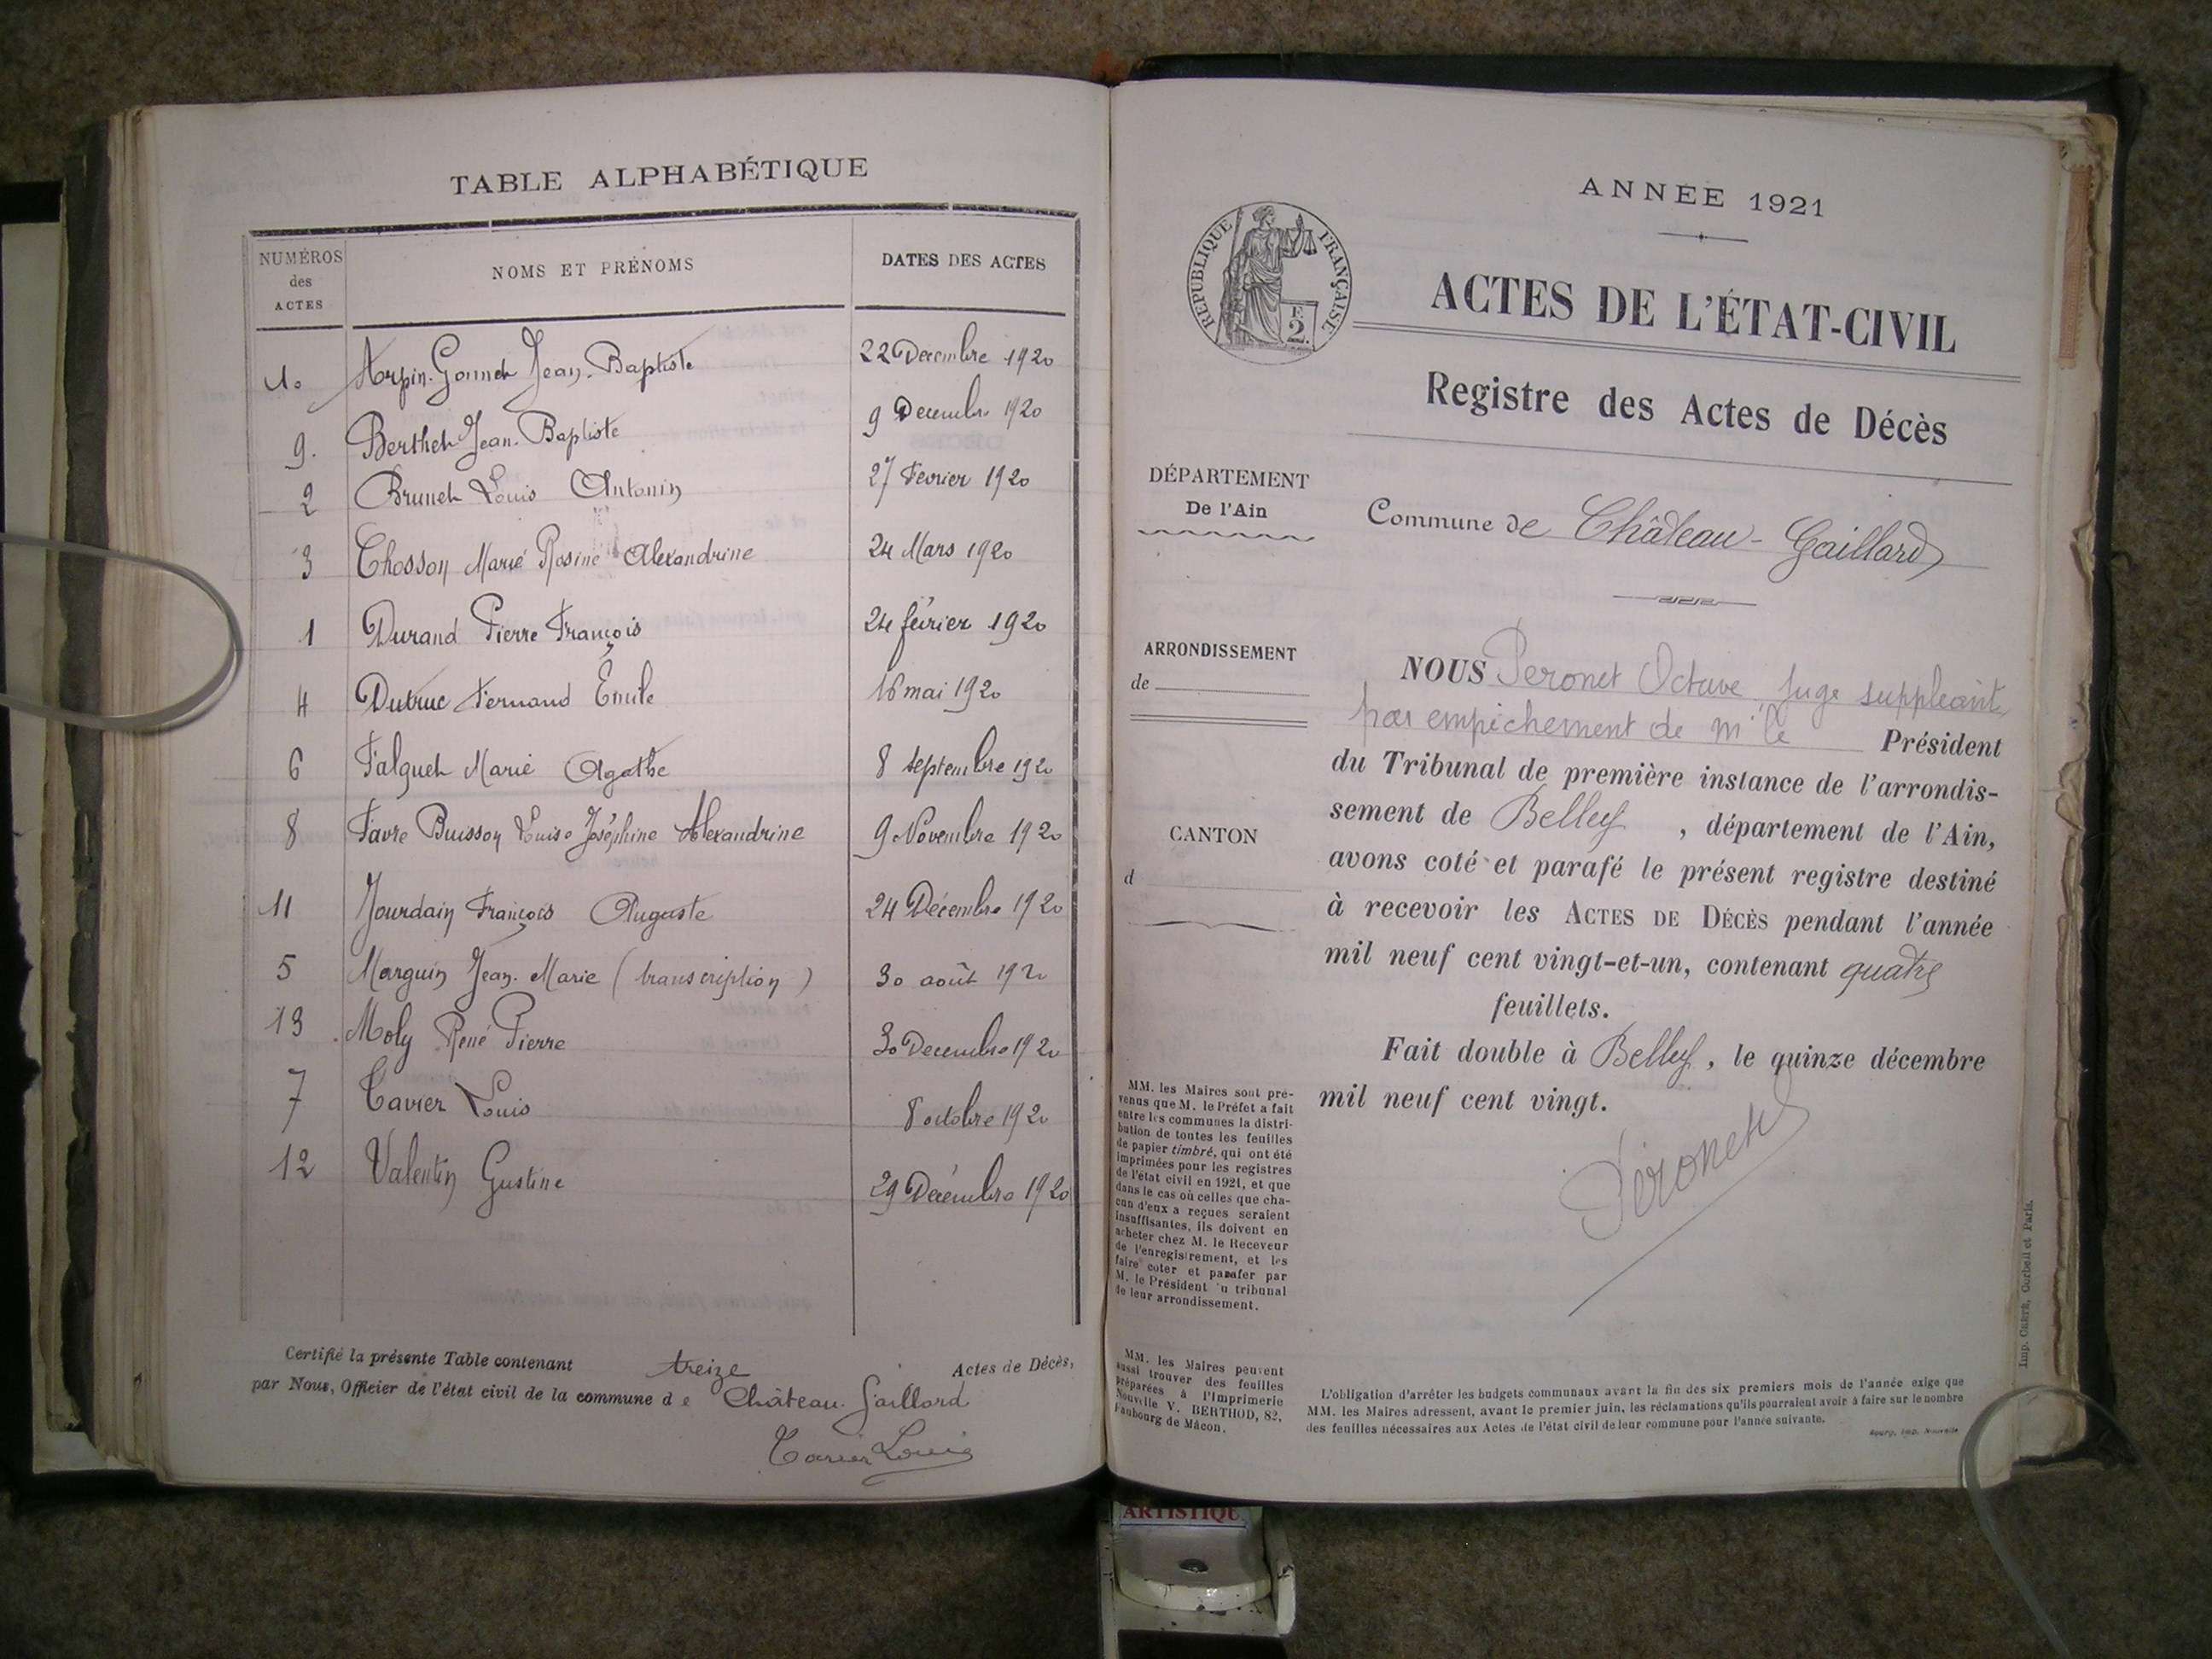 TABLE ALPHABÉTIQUE
NUMÉROS des ACTES | NOMS ET PRÉNOMS | DATES DES ACTES
10 Arpin-Gonnet Jean-Baptiste 22 Décembre 1920
9. Berthet Jean-Baptiste 9 Décembre 1920
2 Brunet Louis Antonin 27 Février 1920
3 Chosson Marie Rosine Alexandrine 24 Mars 1920
1 Durand Pierre François 24 février 1920
4 Dutruc Fernand Emile 16 mai 1920
6 Falguet Marie Agathe 8 septembre 1920
8 Favre Buisson Louise Joséphine Alexandrine 9 Novembre 1920
11 Jourdain François Auguste 24 Décembre 1920
5 Marguin Jean-Marie (transcription) 30 août 1920
13 Moly René Pierre 30 Décembre 1920
7 Tavier Louis 8 octobre 1920
12 Valentin Gustine 29 Décembre 1920
Certifié la présente Table contenant treize Actes de Décès,
par Nous, Officier de l'état civil de la commune de Château-Gaillard
Tavier Louis
ANNÉE 1921
RÉPUBLIQUE FRANÇAISE
ACTES DE L'ÉTAT-CIVIL
Registre des Actes de Décès
DÉPARTEMENT
De l'Ain
Commune de Château-Gaillard
ARRONDISSEMENT
de
CANTON
d
NOUS Peronet Octave juge suppléant
par empêchement de Mr le Président
du Tribunal de première instance de l'arrondis-
sement de Belley, département de l'Ain,
avons coté et parafé le présent registre destiné
à recevoir les ACTES DE DÉCÈS pendant l'année
mil neuf cent vingt-et-un, contenant quatre
feuillets.
Fait double à Belley, le quinze décembre
mil neuf cent vingt.
Péronet
MM. les Maires sont pré-
venus que M. le Préfet a fait
entre les communes la distri-
bution de toutes les feuilles
de papier timbré, qui ont été
imprimées pour les registres
de l'état civil en 1921, et que
dans le cas où celles que cha-
cun d'eux a reçues seraient
insuffisantes, ils doivent en
acheter chez M. le Receveur
de l'enregistrement, et les
faire coter et parafer par
M. le Président du tribunal
de leur arrondissement.
MM. les Maires peuvent
aussi trouver des feuilles
préparées à l'Imprimerie
Nouvelle V. BERTHOD, 82,
Faubourg de Mâcon.
L'obligation d'arrêter les budgets communaux avant la fin des six premiers mois de l'année exige que
MM. les Maires adressent, avant le premier juin, les réclamations qu'ils pourraient avoir à faire sur le nombre
des feuilles nécessaires aux Actes de l'état civil de leur commune pour l'année suivante.
Bourg, Imp. Nouvelle
Imp. CRÉTÉ, Corbeil et Paris.
ARTISTIQU